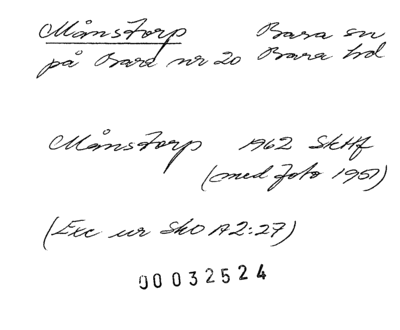 Månstorp Bara sn
på Bara nr 20 Bara hd
Månstorp 1962 SkHf
(med foto 1951)
(Exc ur SkO A2:27)
00032524